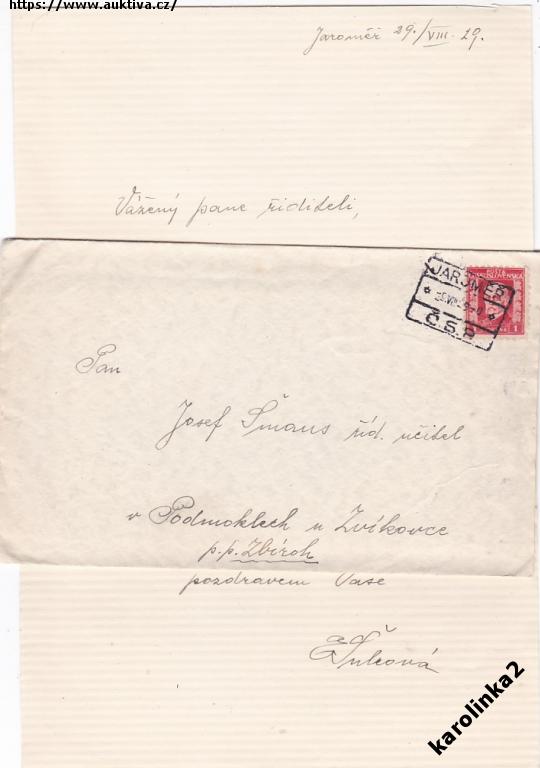 https://www.auktiva.cz/
Jaroměř 29./VIII. 29.
Vážený pane řediteli,
JAROMĚŘ
Č.S.P.
1
Pan
Josef Šmaus říd. učitel
v Podmoklech u Zvíkovce
p.p. Zbiroh
pozdravem Vaše
karolinka2